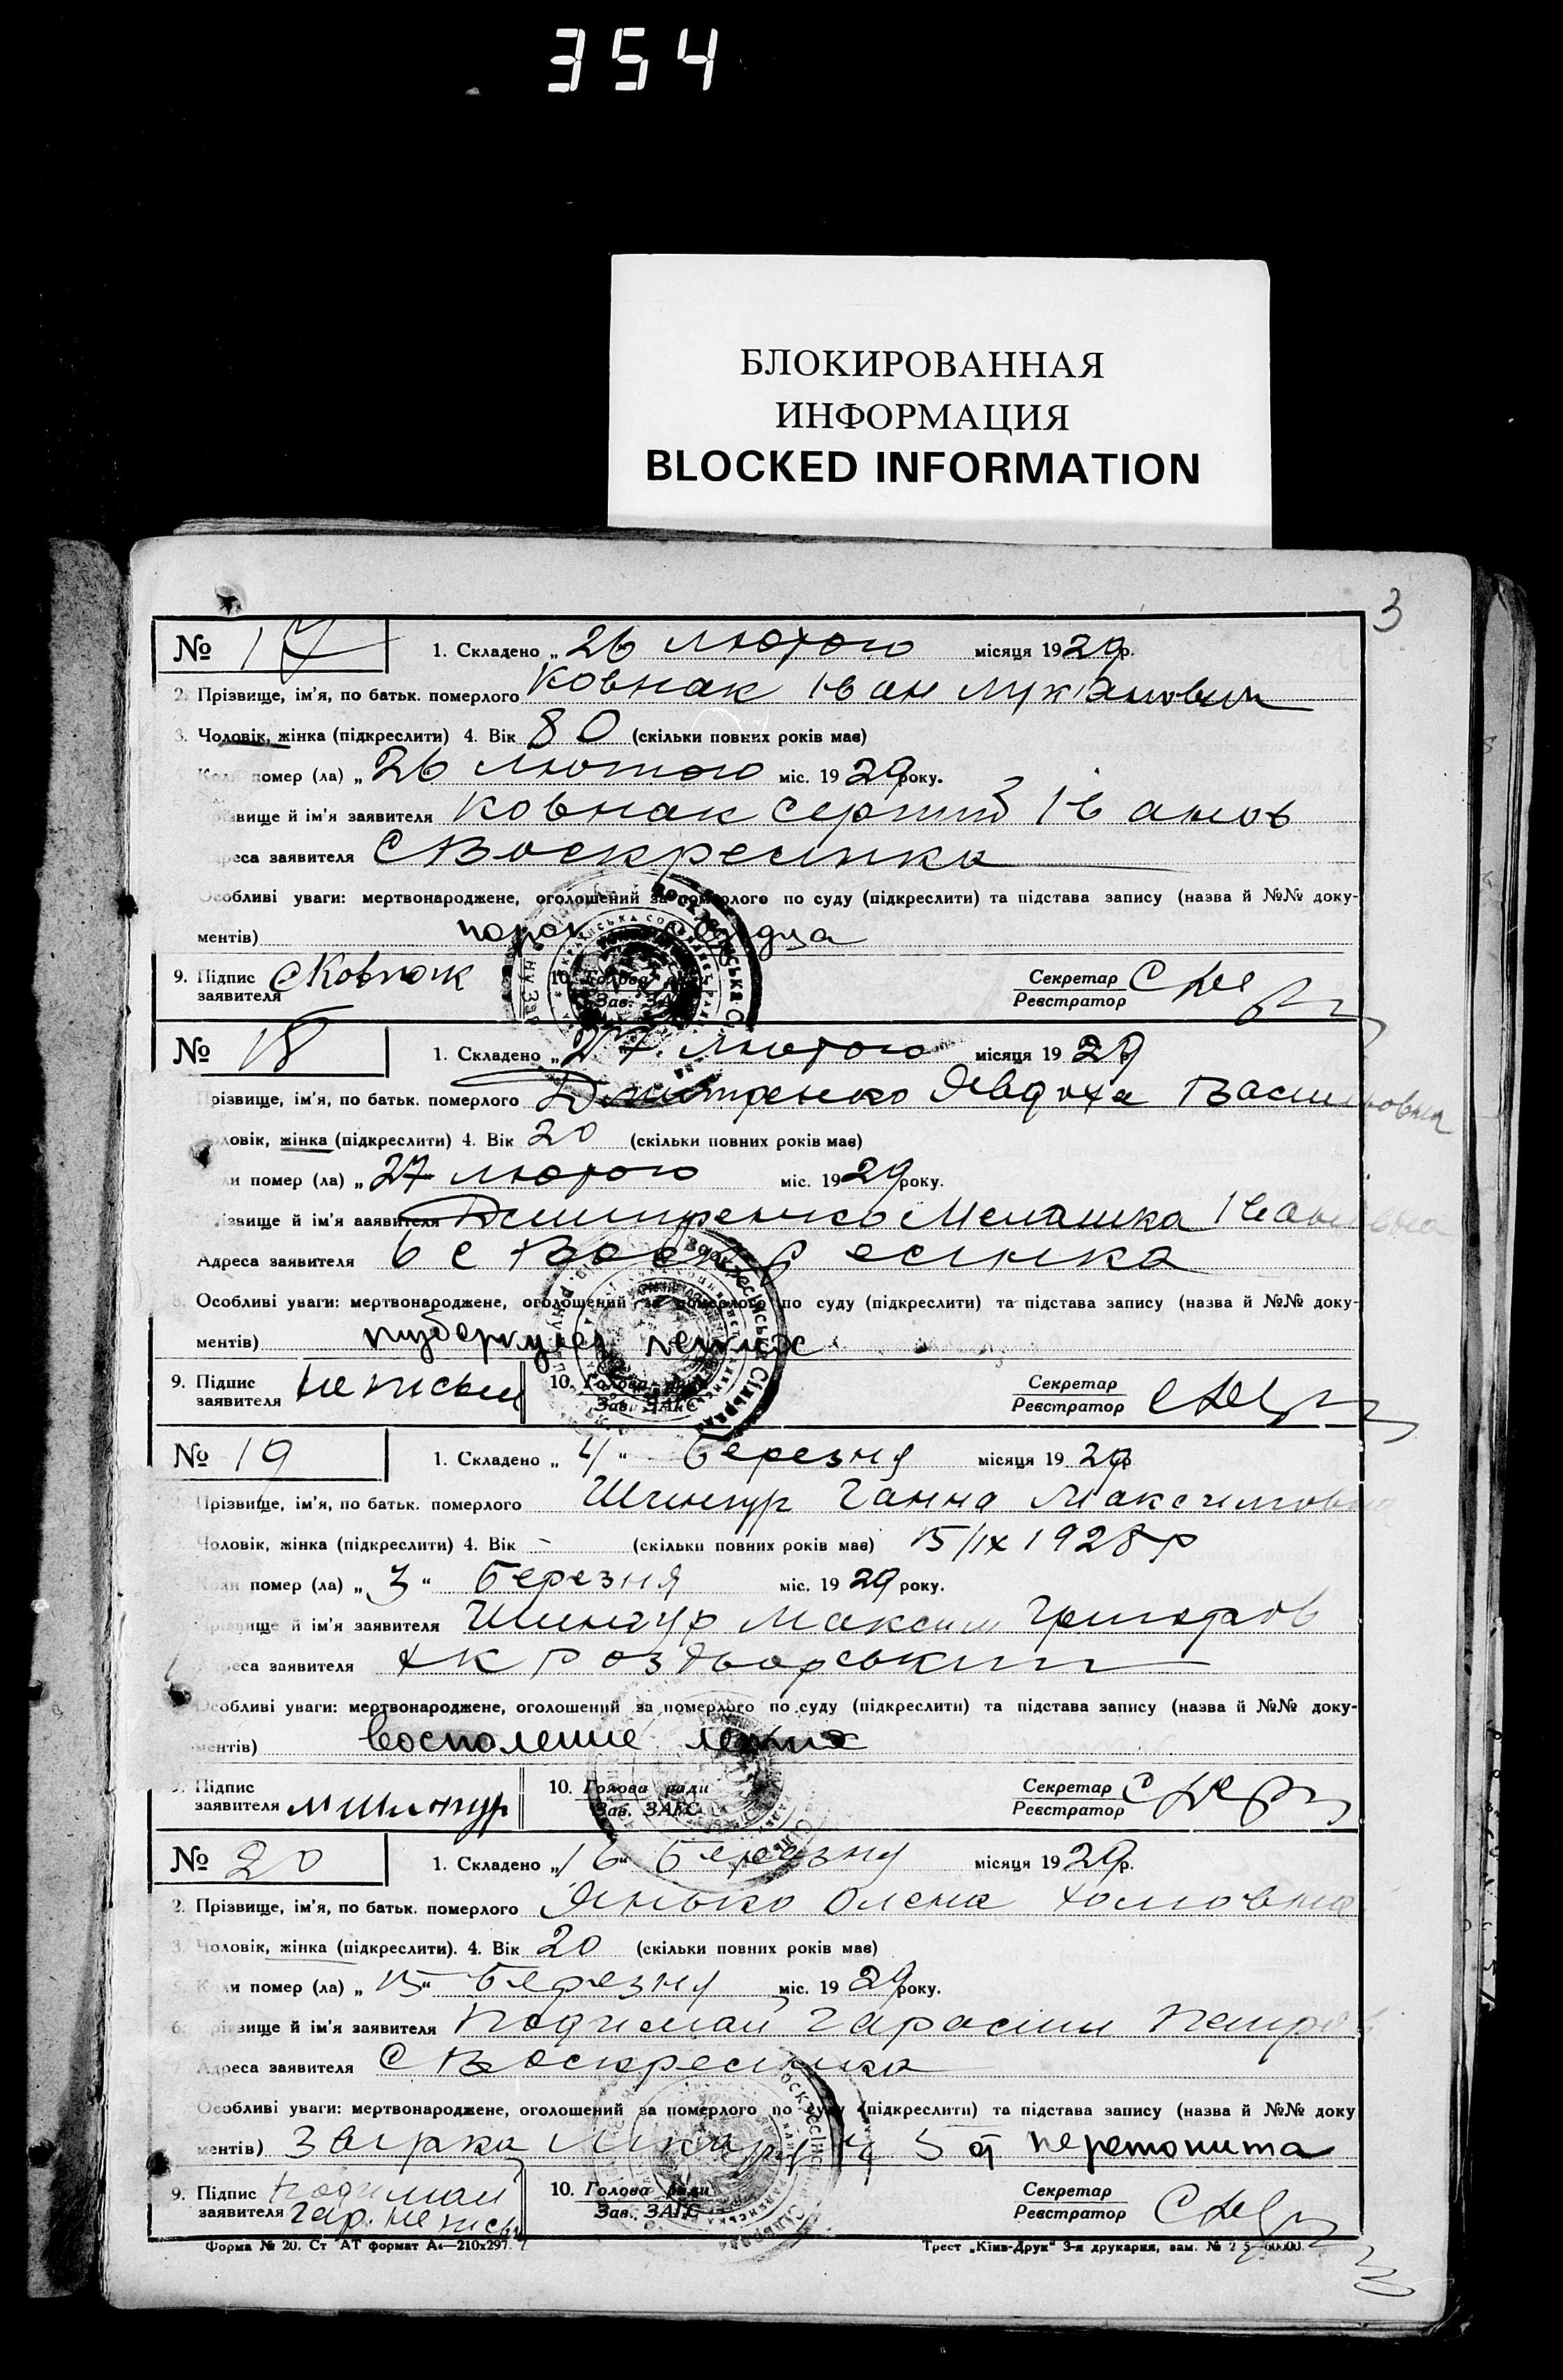 354
БЛОКИРОВАННАЯ
ИНФОРМАЦИЯ
BLOCKED INFORMATION
3
№ 17 1. Складено „ 26 лютого місяця 1929р.
2. Прізвище, ім'я, по батьк. померлого Ковпак Іван Лук'янович
3. Чоловік, жінка (підкреслити) 4. Вік 80 (скільки повних років має)
помер (ла) „ 26 лютого міс. 1929 року.
й ім'я заявителя Ковпак Сергій Іванов
заявителя с Воскресінка
Особливі уваги: мертвонароджене, оголошений за померлого по суду (підкреслити) та підстава запису (назва й №№ доку-
ментів) порок сердца
9. Підпис заявителя С Ковпак 10. Голова ради Зав. ЗАГС Секретар Реєстратор
№ 18 1. Складено „ 27 лютого місяця 1929
Прізвище, ім'я, по батьк. померлого Дмитренко Явдоха Василовна
Чоловік, жінка (підкреслити) 4. Вік 20 (скільки повних років має)
помер (ла) „ 27 лютого міс. 1929 року.
й ім'я заявителя Дмитренко Мелашка Івановна
Адреса заявителя с Воскресінка
8. Особливі уваги: мертвонароджене, оголошений за померлого по суду (підкреслити) та підстава запису (назва й №№ доку-
ментів) туберкулез легких
9. Підпис заявителя неписьм 10. Голова ради Зав. ЗАГС Секретар Реєстратор
№ 19 1. Складено „ 4 " березня місяця 1929р
Прізвище, ім'я, по батьк. померлого Шингур Ганна Максимовна
Чоловік, жінка (підкреслити) 4. Вік - (скільки повних років має) 15/IX 1928 р
помер (ла) „ 3 " березня міс. 1929 року.
Прізвище й ім'я заявителя Шингур Максим Григоров
заявителя
Особливі уваги: мертвонароджене, оголошений за померлого по суду (підкреслити) та підстава запису (назва й №№ доку-
ментів) восполение легких
9. Підпис заявителя М Шингур 10. Голова ради Зав. ЗАГС Секретар Реєстратор
№ 20 1. Складено „ 16 " березня місяця 1929р.
2. Прізвище, ім'я, по батьк. померлого Янько Олена Хомовна
3. Чоловік, жінка (підкреслити). 4. Вік 20 (скільки повних років має)
помер (ла) „ 15 " березня міс. 1929 року.
6. й ім'я заявителя Подимай Гарасим Петров
Адреса заявителя с Воскресінка
Особливі уваги: мертвонароджене, оголошений за померлого по суду (підкреслити) та підстава запису (назва й №№ доку
ментів) 5 перетонита
9. Підпис заявителя Подимай Гар. неписьм 10. Голова ради Зав. ЗАГС Секретар Реєстратор
Форма № 20. Ст АТ формат А4—210x297. Трест „Київ-Друк" 3-я друкарня, зам. №